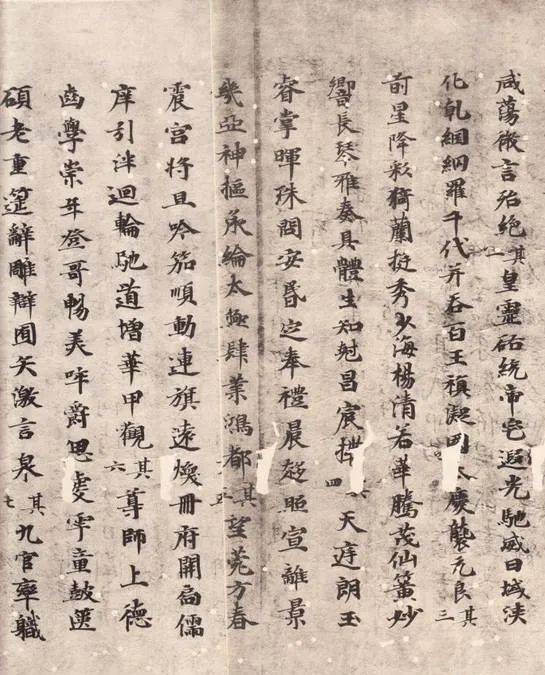 咸蕩微言殆絶其二皇靈祏統帝宅遐光馳威日域浹
化乹綱網羅千代并吞百王禎凝慶襲元良其三
前星降彩猗蘭挺秀少海楊清若華騰茂仙簧妙
響長琴雅奏具體生知射昌宸其四天庭朗玉
睿掌暉珠問安昏定奉禮晨趍照宣離景
幾亞神樞承綸太極肆業鴻都其五望苑方春
震宮將旦吟笳順動連旗遠煥冊府開扃儒
庠引泮迴輪馳道增華甲觀其六尊師上德
齒學崇年登哥暢美呼爵思虔雩童鼓篋
碩老重筵辭雕辯囿矢激言泉其七九官率職